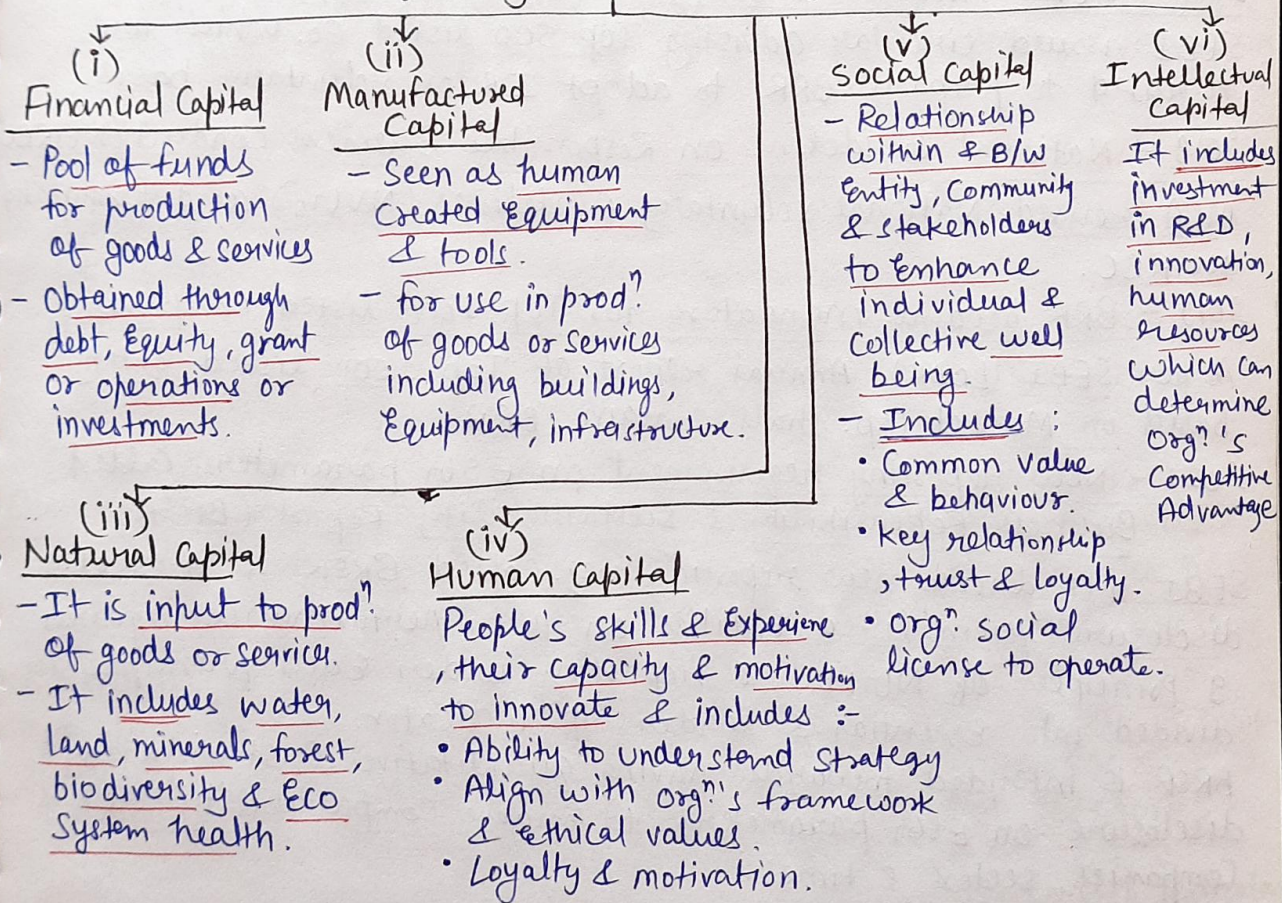 (i)
Financial Capital
- Pool of funds
for production
of goods & services
- Obtained through
debt, Equity, grant
or operations or
investments.
(ii)
Manufactured
Capital
- Seen as human
created Equipment
& tools.
- for use in prodⁿ.
of goods or services
including buildings,
Equipment, infrastructure.
(iii)
Natural Capital
- It is input to prodⁿ.
of goods or services.
- It includes water,
land, minerals, forest,
biodiversity & Eco
System health.
(iv)
Human Capital
People's skills & Experiene
, their capacity & motivation
to innovate & includes :-
• Ability to understand strategy
• Align with orgⁿ's framework
& Ethical values.
• Loyalty & motivation.
(v)
Social Capital
- Relationship
within & B/W
Entity, Community
& stakeholders
to Enhance
individual &
Collective well
being.
- Includes :
• Common value
& behaviour.
• Key relationship
, trust & Loyalty.
• orgⁿ. social
license to operate.
(vi)
Intellectual
Capital
It includes
investment
in R&D,
innovation,
human
resources
which can
determine
Orgⁿ.'s
Competitive
Advantage